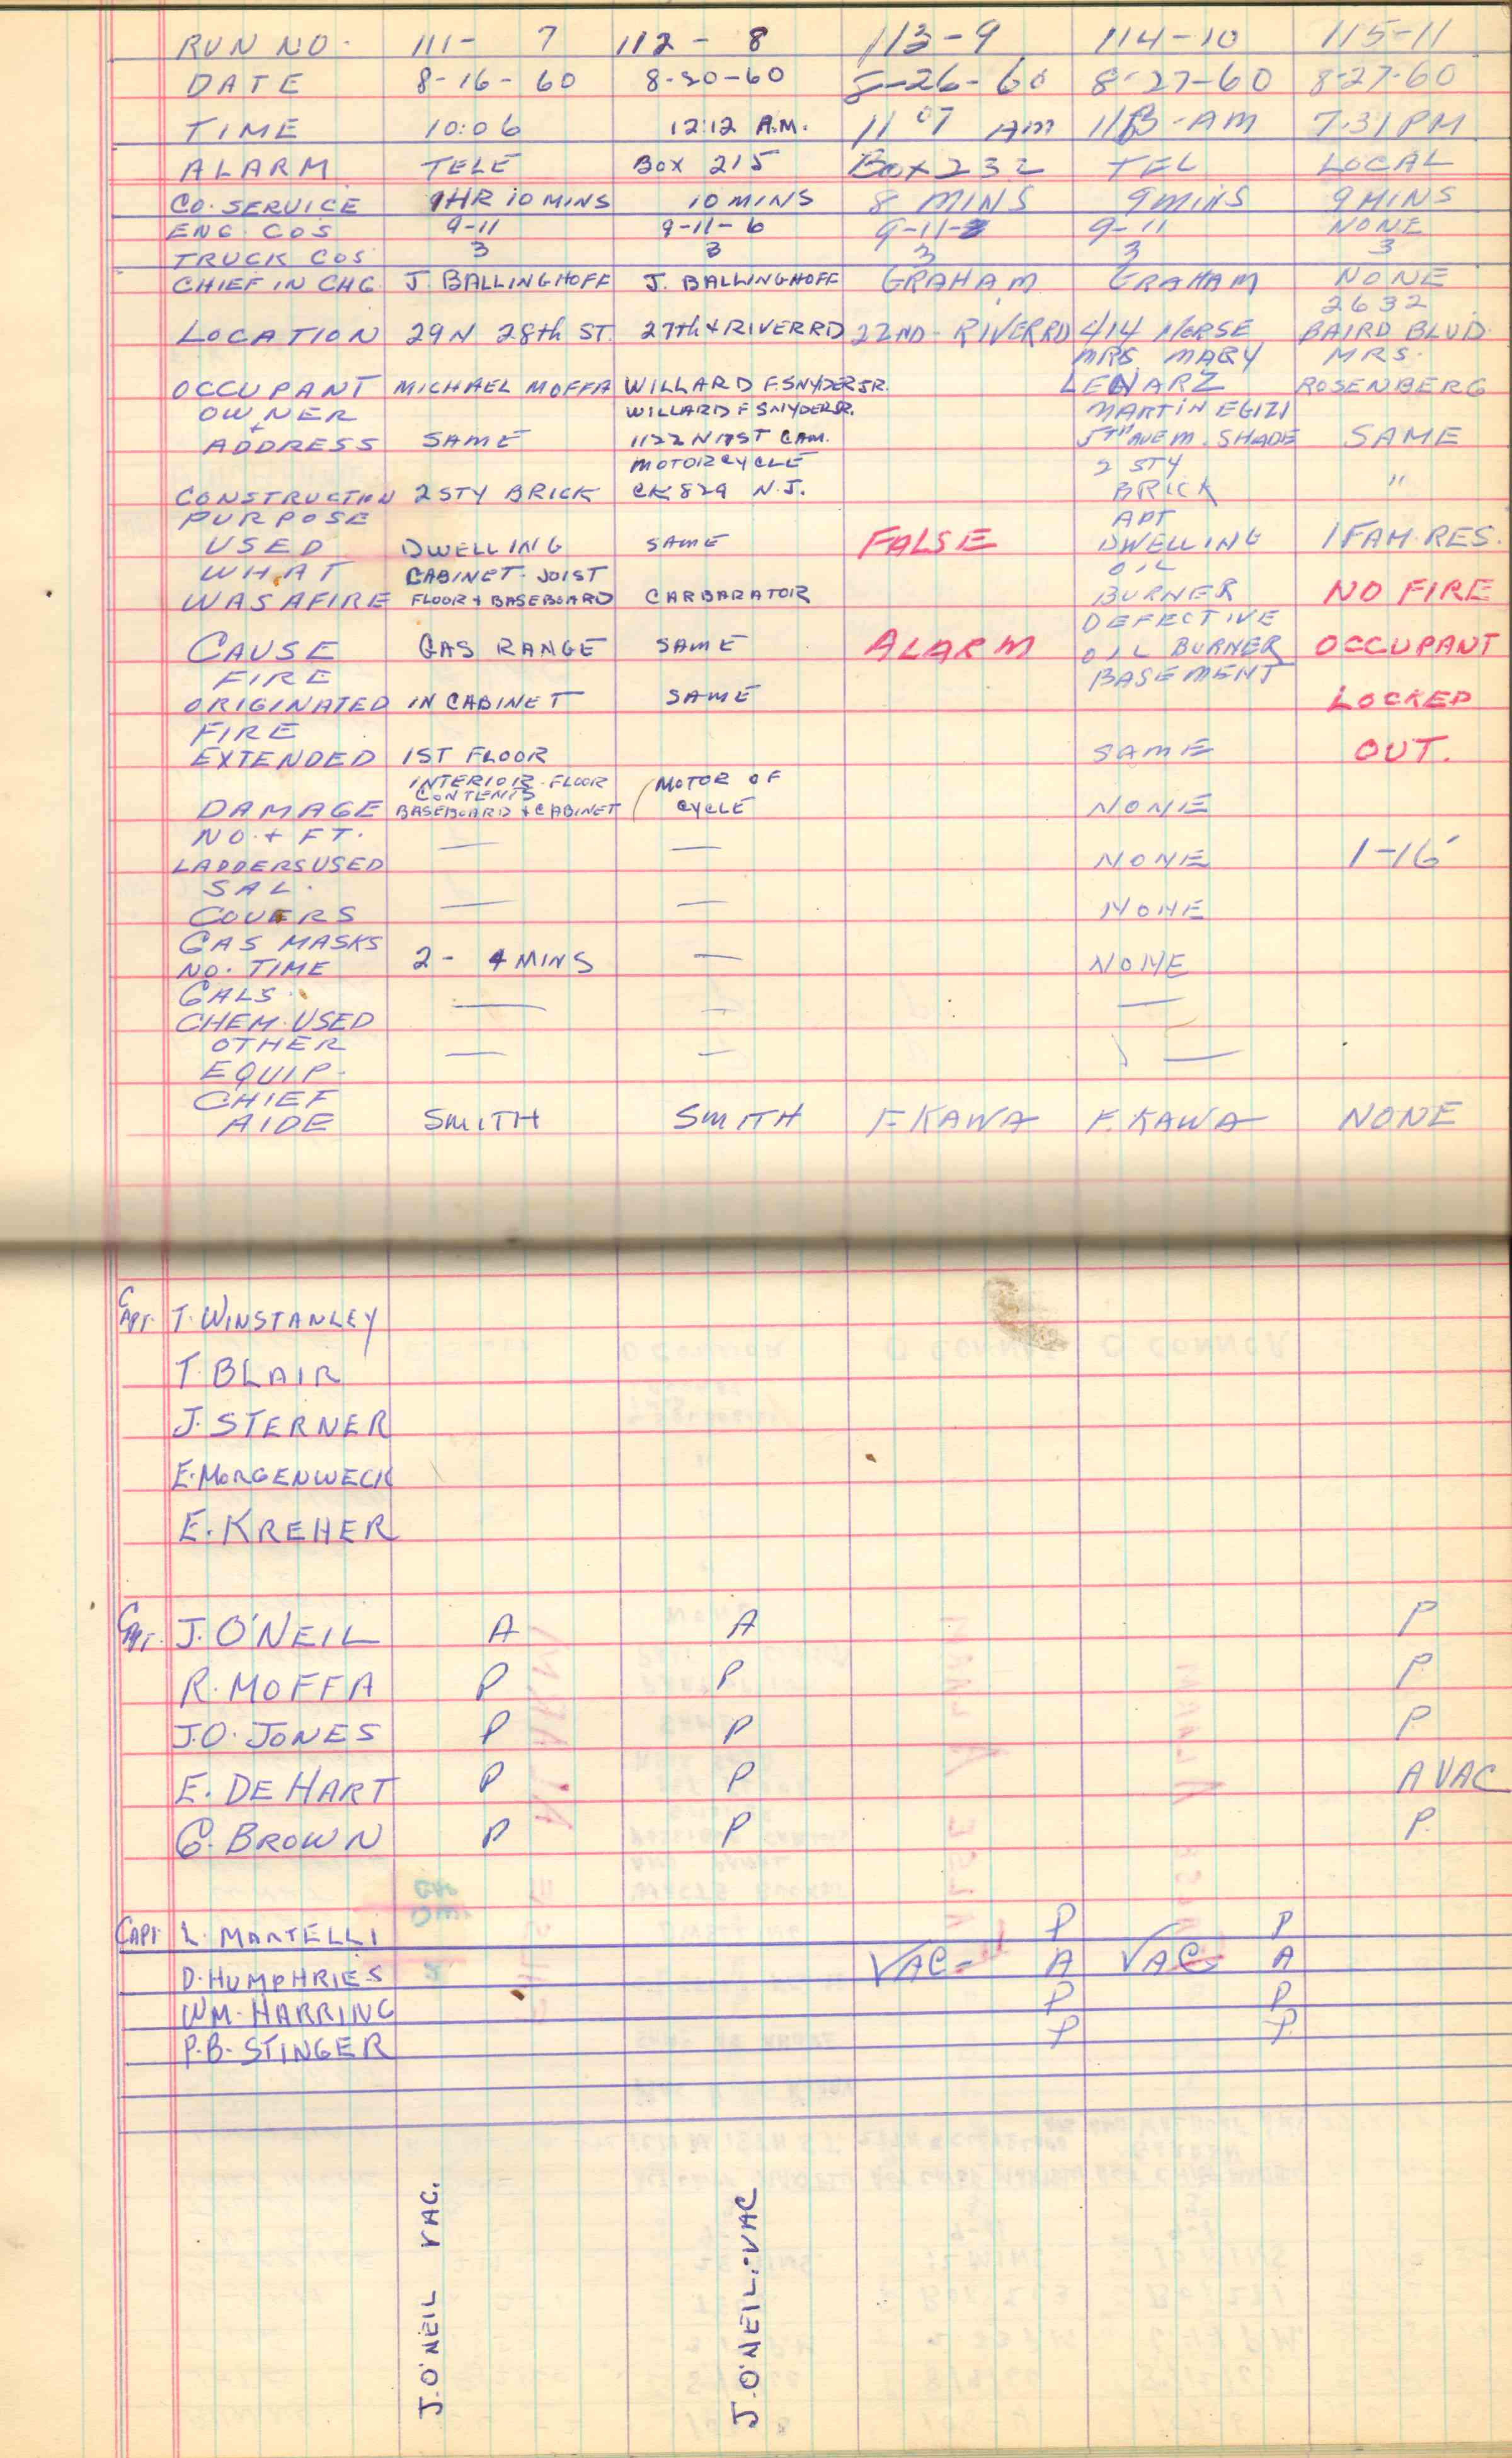 RUN NO. 111- 7 112 - 8 113-9 114-10 115-11
DATE 8-16-60 8-20-60 8-26-60 8-27-60 8-27-60
TIME 10:06 12:12 A.M. 11 07 AM 11 AM 7:31 PM
ALARM TELE BOX 215 BOX 232 TEL LOCAL
CO. SERVICE 1HR 10 MINS 10 MINS 8 MINS 9 MINS 9 MINS
ENG. COS 9-11 9-11-6 9-11- 9-11 NONE
TRUCK COS 3 3 3 3 3
CHIEF IN CHG. J. BALLINGHOFF J. BALLINGHOFF GRAHAM GRAHAM NONE
2632
LOCATION 29 N 28th ST. 27th + RIVER RD 22ND - RIVER RD 414 MORSE BAIRD BLVD.
MRS MARY MRS.
OCCUPANT MICHAEL MOFFA WILLARD F. SNYDER JR. LENARZ ROSENBERG
OWNER WILLARD F SNYDER JR. MARTIN EGIZI
+ ADDRESS SAME 1122 N 17 ST CAM. 5TH AVE M. SHADE SAME
MOTORCYCLE 2 STY
CONSTRUCTION 2 STY BRICK CK829 N.J. BRICK "
PURPOSE APT
USED DWELLING SAME FALSE DWELLING 1 FAM. RES.
WHAT CABINET. JOIST OIL
WAS AFIRE FLOOR + BASEBOARD CARBARATOR BURNER NO FIRE
DEFECTIVE
CAUSE GAS RANGE SAME ALARM OIL BURNER OCCUPANT
FIRE BASEMENT
ORIGINATED IN CABINET SAME LOCKED
FIRE
EXTENDED 1ST FLOOR SAME OUT.
INTERIOR. FLOOR MOTOR OF
CONTENTS
DAMAGE BASEBOARD + CABINET CYCLE NONE
NO. + FT.
LADDERS USED — — NONE 1-16'
SAL.
COVERS — — NONE
GAS MASKS
NO. TIME 2 - 4 MINS — NONE
GALS.
CHEM. USED — — —
OTHER
EQUIP. — — —
CHIEF
AIDE SMITH SMITH F. KAWA F. KAWA NONE
CAPT. T. WINSTANLEY
T. BLAIR
J. STERNER
E. MORGENWECK
E. KREHER
CAPT. J. O'NEIL A A P
R. MOFFA P P P
J.O. JONES P P P
E. DE HART P P A VAC
G. BROWN P P P.
CAPT. L. MARTELLI P P
D. HUMPHRIES VAC- A VAC- A
WM. HARRING P P
P.B. STINGER P P
J. O'NEIL VAC.
J. O'NEIL.-VAC